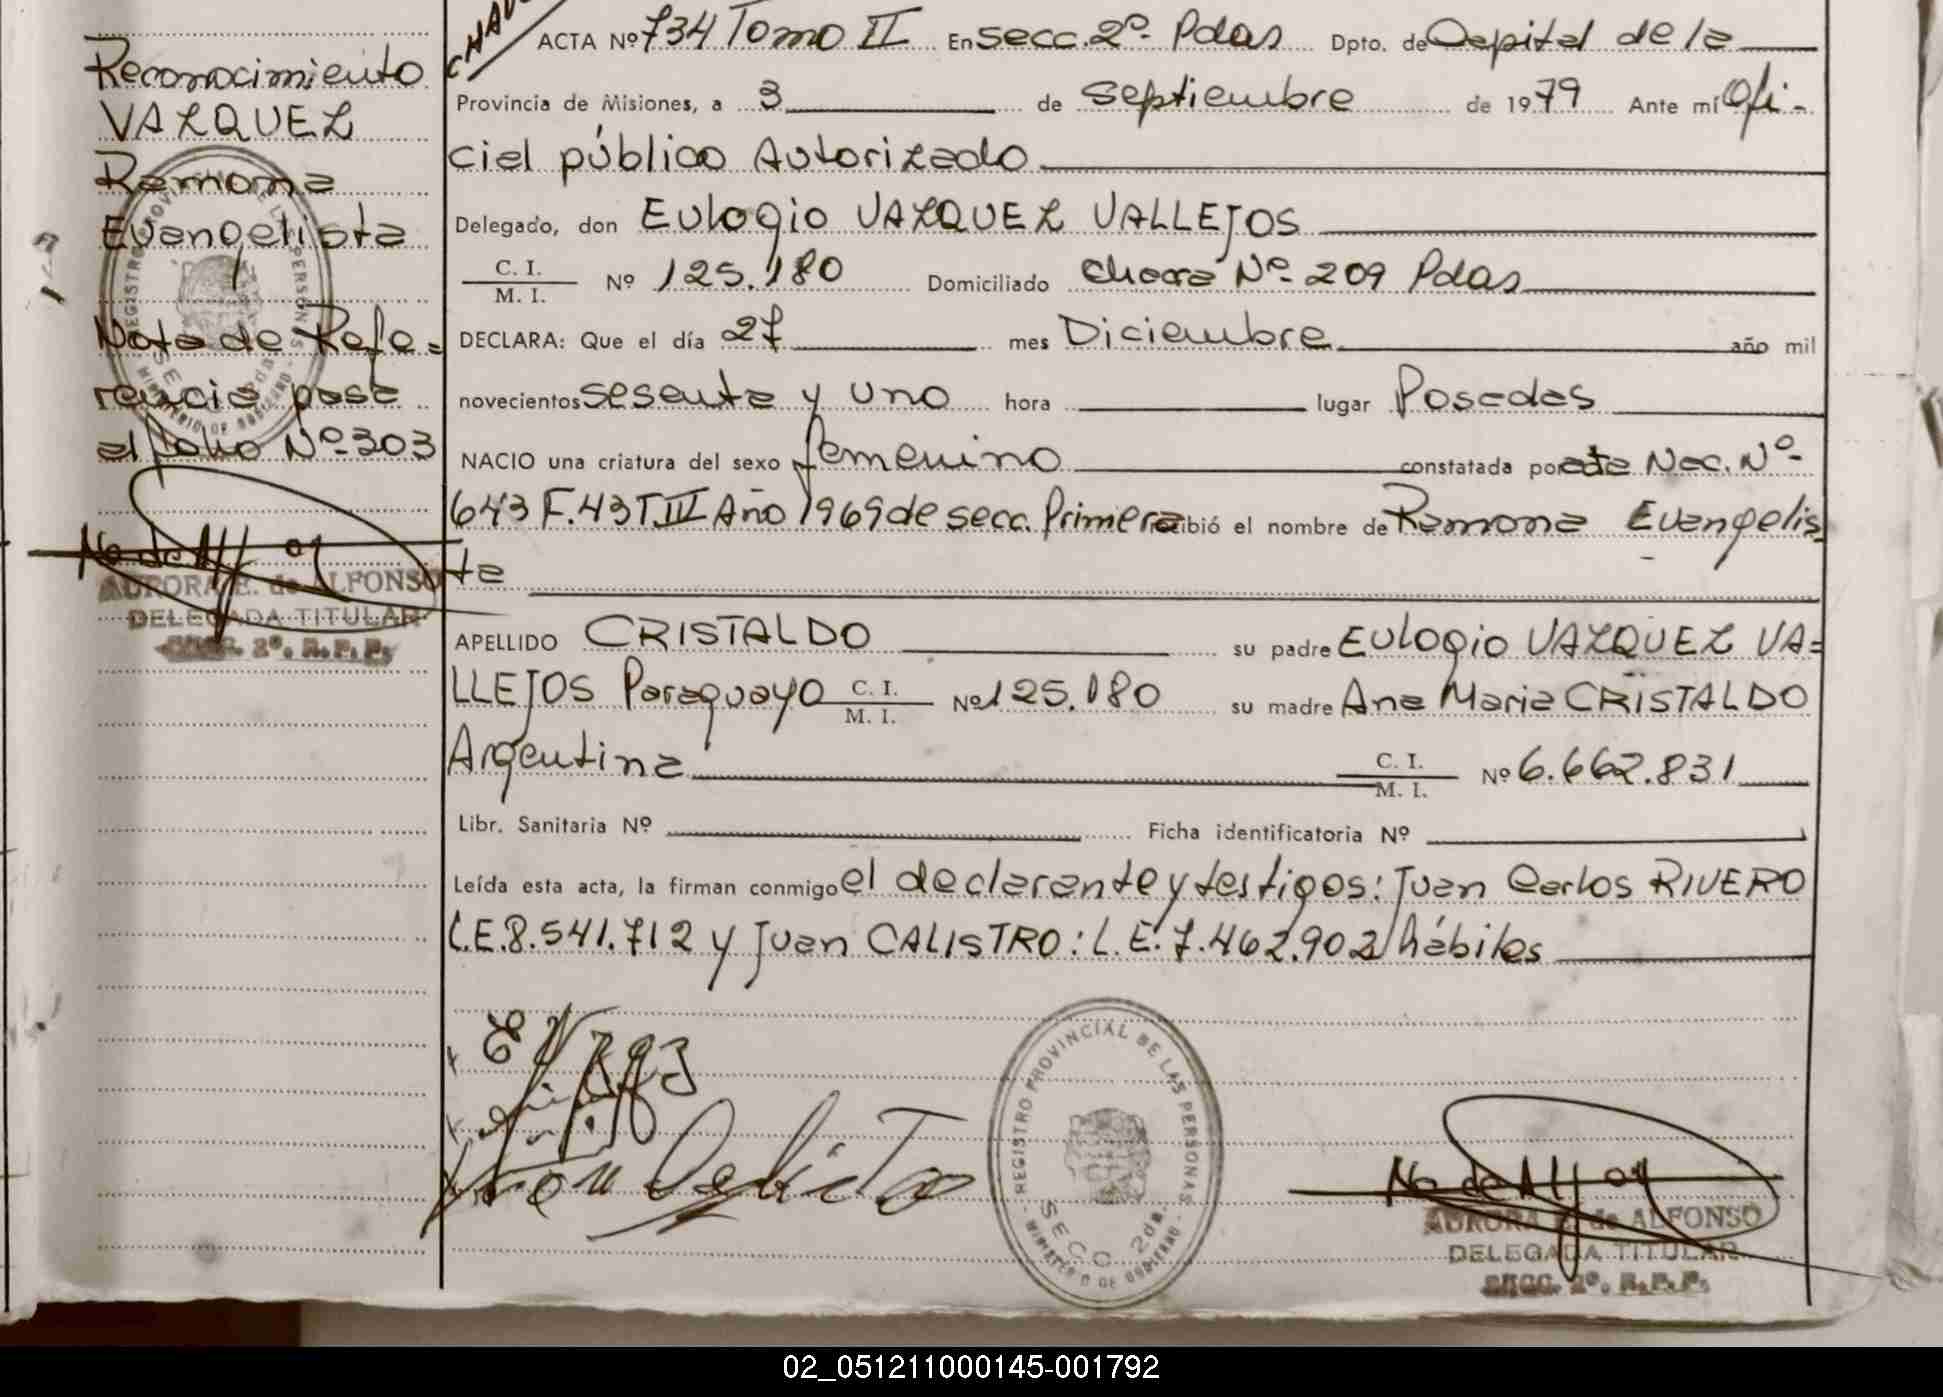 Reconocimiento
VAZQUEZ
Ramona
Evangelista
Nota de Refe=
rencia pasa
al folio Nº 303
AURORA E. de ALFONSO
DELEGADA TITULAR
SECC. 2º. R.P.P.
ACTA Nº 734 Tomo II En secc. 2º Pdas Dpto. de Capital de la
Provincia de Misiones, a 3 de Septiembre de 1979 Ante mí Ofi-
cial público Autorizado
Delegado, don Eulogio VAZQUEZ VALLEJOS
C. I.
M. I. Nº 125.180 Domiciliado Chacra Nº 209 Pdas
DECLARA: Que el día 27 mes Diciembre año mil
novecientos sesenta y uno hora lugar Posadas
NACIO una criatura del sexo femenino constatada por acta Nac. Nº
643 F.43 T.III Año 1969 de secc. Primera recibió el nombre de Ramona Evangelis
ta
APELLIDO CRISTALDO su padre Eulogio VAZQUEZ VA=
LLEJOS Paraguayo C. I. M. I. Nº 125.180 su madre Ana Maria CRISTALDO
Argentina C. I. M. I. Nº 6.662.831
Libr. Sanitaria Nº Ficha identificatoria Nº
Leída esta acta, la firman conmigo el declarante y testigos: Juan Carlos RIVERO
L.E. 8.541.712 y Juan CALISTRO: L.E. 7.462.902 hábiles
REGISTRO PROVINCIAL DE LAS PERSONAS
SECC. 2da.
MINISTERIO DE GOBIERNO
AURORA E. de ALFONSO
DELEGADA TITULAR
SECC. 2º. R.P.P.
02_051211000145-001792